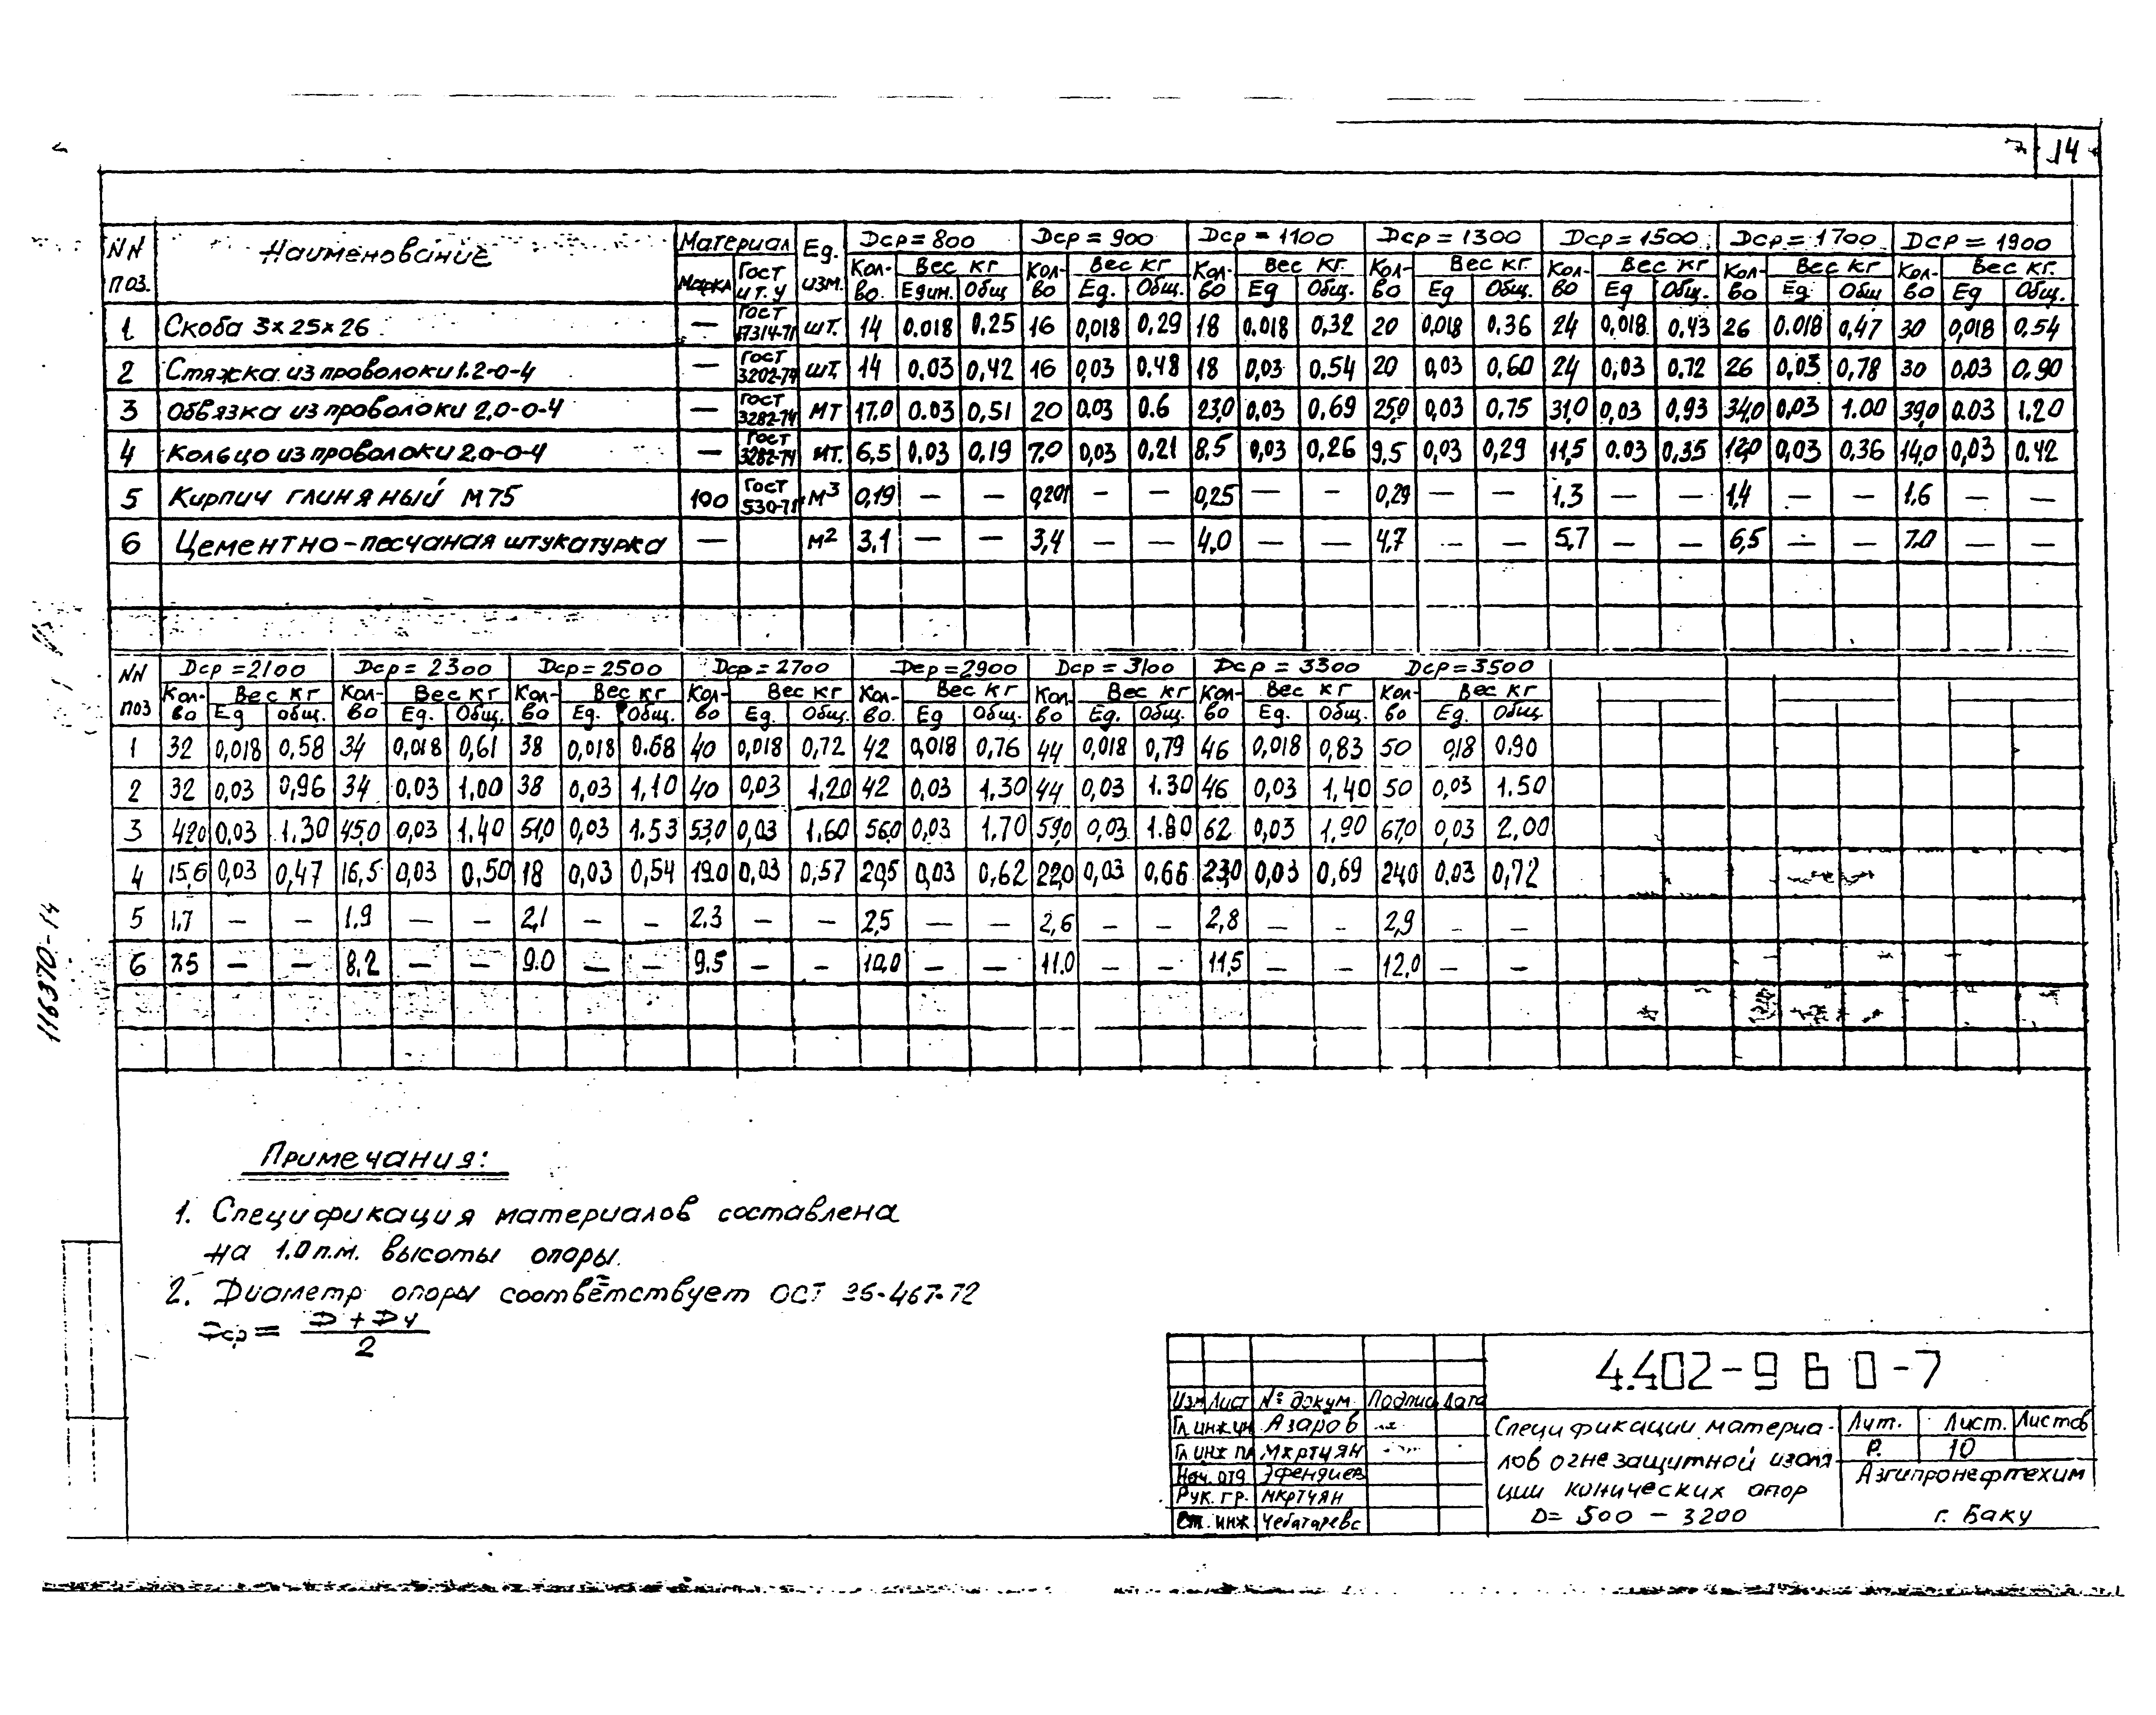 14
NN поз. Наименование Материал Ед. изм. Dср=800 Dср=900 Dср=1100 Dср=1300 Dср=1500 Dср=1700 Dср=1900
Марка ГОСТ и т.у Кол-во. Вес кг Кол-во Вес кг Кол-во Вес кг. Кол-во Вес кг. Кол-во Вес кг Кол-во Вес кг Кол-во Вес кг.
Един. Общ Ед. Общ. Ед Общ. Ед Общ. Ед Общ. Ед Общ Ед Общ.
1 Скоба 3×25×26 — ГОСТ 17314-71 шт. 14 0.018 0.25 16 0,018 0.29 18 0.018 0,32 20 0,018 0.36 24 0,018 0.43 26 0.018 0,47 30 0,018 0.54
2 Стяжка из проволоки 1.2-0-4 — ГОСТ шт. 14 0.03 0,42 16 0,03 0.48 18 0,03 0.54 20 0,03 0,60 24 0,03 0.72 26 0,03 0,78 30 0.03 0.90
3 Обвязка из проволоки 2,0-0-4 — ГОСТ 3282-74 мт 17.0 0.03 0,51 20 0.03 0.6 23,0 0,03 0.69 25,0 0,03 0.75 31,0 0,03 0,93 34,0 0,03 1.00 39,0 0.03 1.20
4 Кольцо из проволоки 2.0-0-4 — ГОСТ 3282-74 мт. 6,5 0.03 0,19 7.0 0,03 0,21 8.5 0,03 0,26 9,5 0,03 0,29 11,5 0.03 0,35 12,0 0,03 0,36 14,0 0,03 0.42
5 Кирпич глиняный М75 100 ГОСТ м³ 0,19 — — 0,201 — — 0,25 — — 0,29 — — 1.3 — — 1,4 — — 1.6 — —
6 Цементно-песчаная штукатурка — м² 3.1 — — 3,4 — — 4.0 — — 4.7 — — 5,7 — — 6,5 — — 7.0 — —
NN поз Dср=2100 Dср=2300 Dср=2500 Dср=2700 Dср=2900 Dср=3100 Dср=3300 Dср=3500
Кол-во Вес кг Кол-во Вес кг Кол-во Вес кг Кол-во Вес кг Кол-во. Вес кг Кол-во Вес кг Кол-во Вес кг Кол-во Вес кг
Ед общ. Ед. Общ. Ед. Общ. Ед. Общ. Ед Общ. Ед. Общ. Ед. Общ. Ед. Общ
1 32 0,018 0.58 34 0,018 0,61 38 0,018 0.68 40 0,018 0,72 42 0,018 0,76 44 0,018 0,79 46 0,018 0,83 50 0,18 0.90
2 32 0,03 0,96 34 0.03 1,00 38 0,03 1,10 40 0,03 1,20 42 0,03 1.30 44 0,03 1.30 46 0,03 1,40 50 0,03 1.50
3 42,0 0,03 1.30 45,0 0,03 1,40 51,0 0,03 1.53 53,0 0,03 1.60 56,0 0,03 1.70 59,0 0,03 1.80 62 0,03 1,90 67,0 0,03 2,00
4 15,6 0,03 0,47 16,5 0,03 0,50 18 0,03 0,54 19.0 0,03 0,57 20,5 0,03 0,62 22,0 0,03 0,66 23,0 0,03 0,69 24,0 0.03 0,72
5 1,7 — — 1.9 — — 2,1 — — 2.3 — — 2,5 — — 2,6 — — 2,8 — — 2,9 — —
6 7.5 — — 8.2 — — 9.0 — — 9.5 — — 10,0 — — 11.0 — — 11,5 — — 12,0 — —
116370-14
Примечания:
1. Спецификация материалов составлена
на 1.0 п.м. высоты опоры.
2. Диаметр опоры соответствует ОСТ 26-467-72
Dср = D + Dч
2
4.402-9 В 0-7
Изм Лист № докум. Подпис Дата
Гл. инж ин Азаров
Гл инж пр Мкртчян
Нач. отд Эфендиев
Рук. гр. Мкртчян
Ст. инж
Спецификации материа-
лов огнезащитной изоля
ции конических опор
D= 500 — 3200
Лит. Лист. Листов
Р. 10
Азгипронефтехим
г. Баку